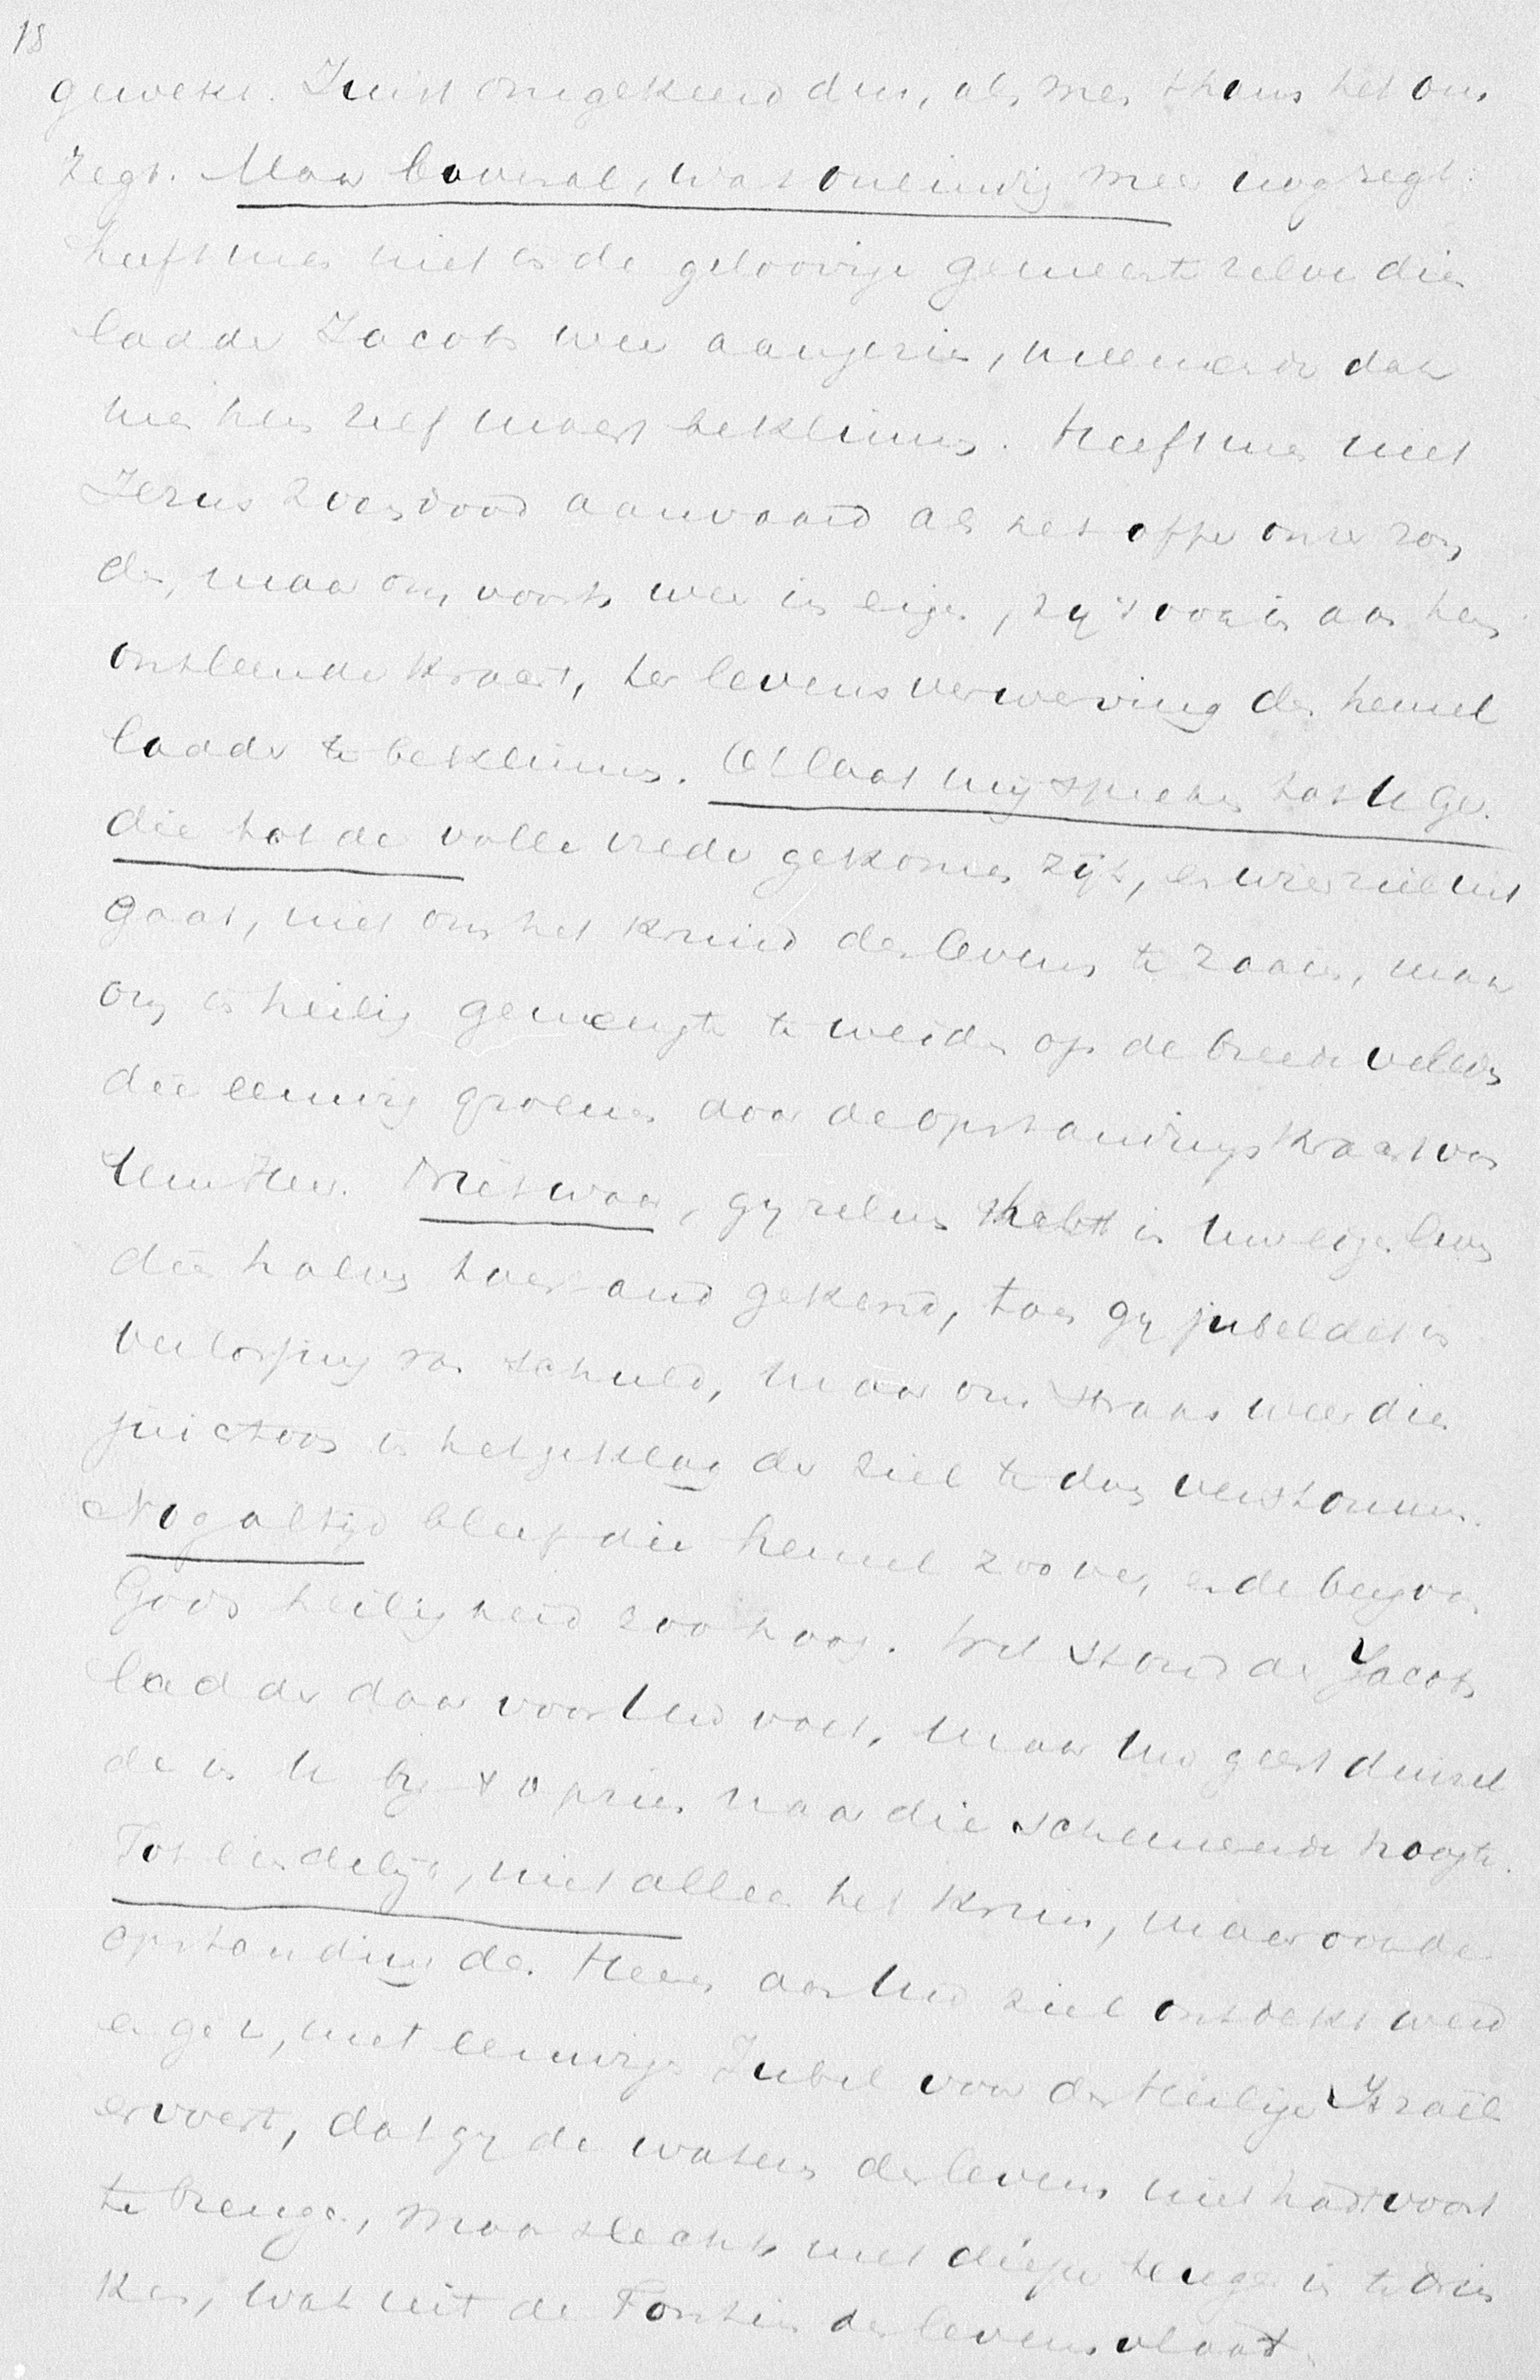 18
gewekt. Juist omgekeerd dus, als men thans het ons
zegt. Maar bovenal, wat oneindig meer nog zegt:
heeft men niet in de geloovige gemeente zelve die
ladder Jacobs weer aangezien, meenende dat
men hem zelf moest beklimmen. Heeft men niet
Jezus zoendood aanvaard als het offer onzer zon
de, maar om voorts weer in eigen, zij 't ook in aan hem
ontleende kracht, ter levensverwerving den hemel
ladder te beklimmen. O laat mij spreken tot U Gel.
die tot de volle vrede gekomen zijt, en wier ziel uit
gaat, niet om het kruid des levens te zaaien, maar
om in heilig geneugte te weiden op de breede velden
die eeuwig groenen door de opstandingskracht van
Uw Heer. Niet waar, gij zelven hebt in Uw eigen leven
dien halven toestand gekend, toen gij jubeldet in
verlossing van schuld, maar om straks weer dien
juichtoon in het geklag der ziel te doen verstommen.
Nog altijd bleef die hemel zoo ver, en de berg van
Gods heiligheid zoo hoog. Wel stond de Jacobs
ladder daar voor Uw voet, maar Uw geest duizel
de in U bij 't opzien naar die schemerende hoogte.
Tot eindelijk, niet alleen het kruis, maar ook de
opstanding des Heeren aan Uw ziel ontdekt werd
en gij 't, met eeuwige Jubel voor den Heilige Israëls
ervoert, dat gij de wateren des levens niet hadt voort
te brengen, maar slechts met diepe teugen in te drin
ken, wat uit de Fontein des levens vloeit.